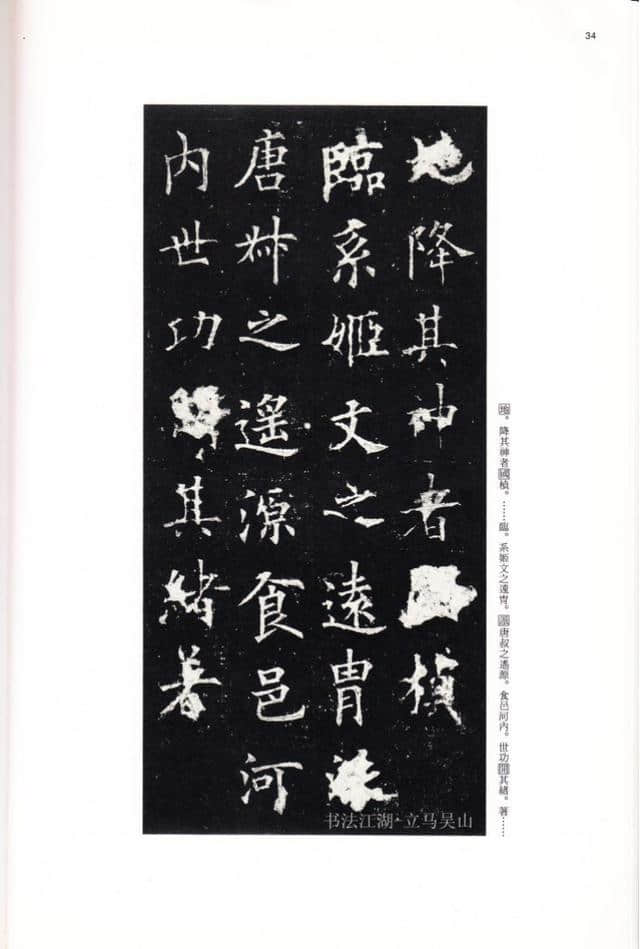 34
地降其神者楨
臨系姬文之遠胄
唐叔之遙源食邑河
内世功其緒著
地。降其神者國楨。……臨。系姬文之遠胄。唐叔之遙源。食邑河内。世功其緒。著……
书法江湖·立马吴山